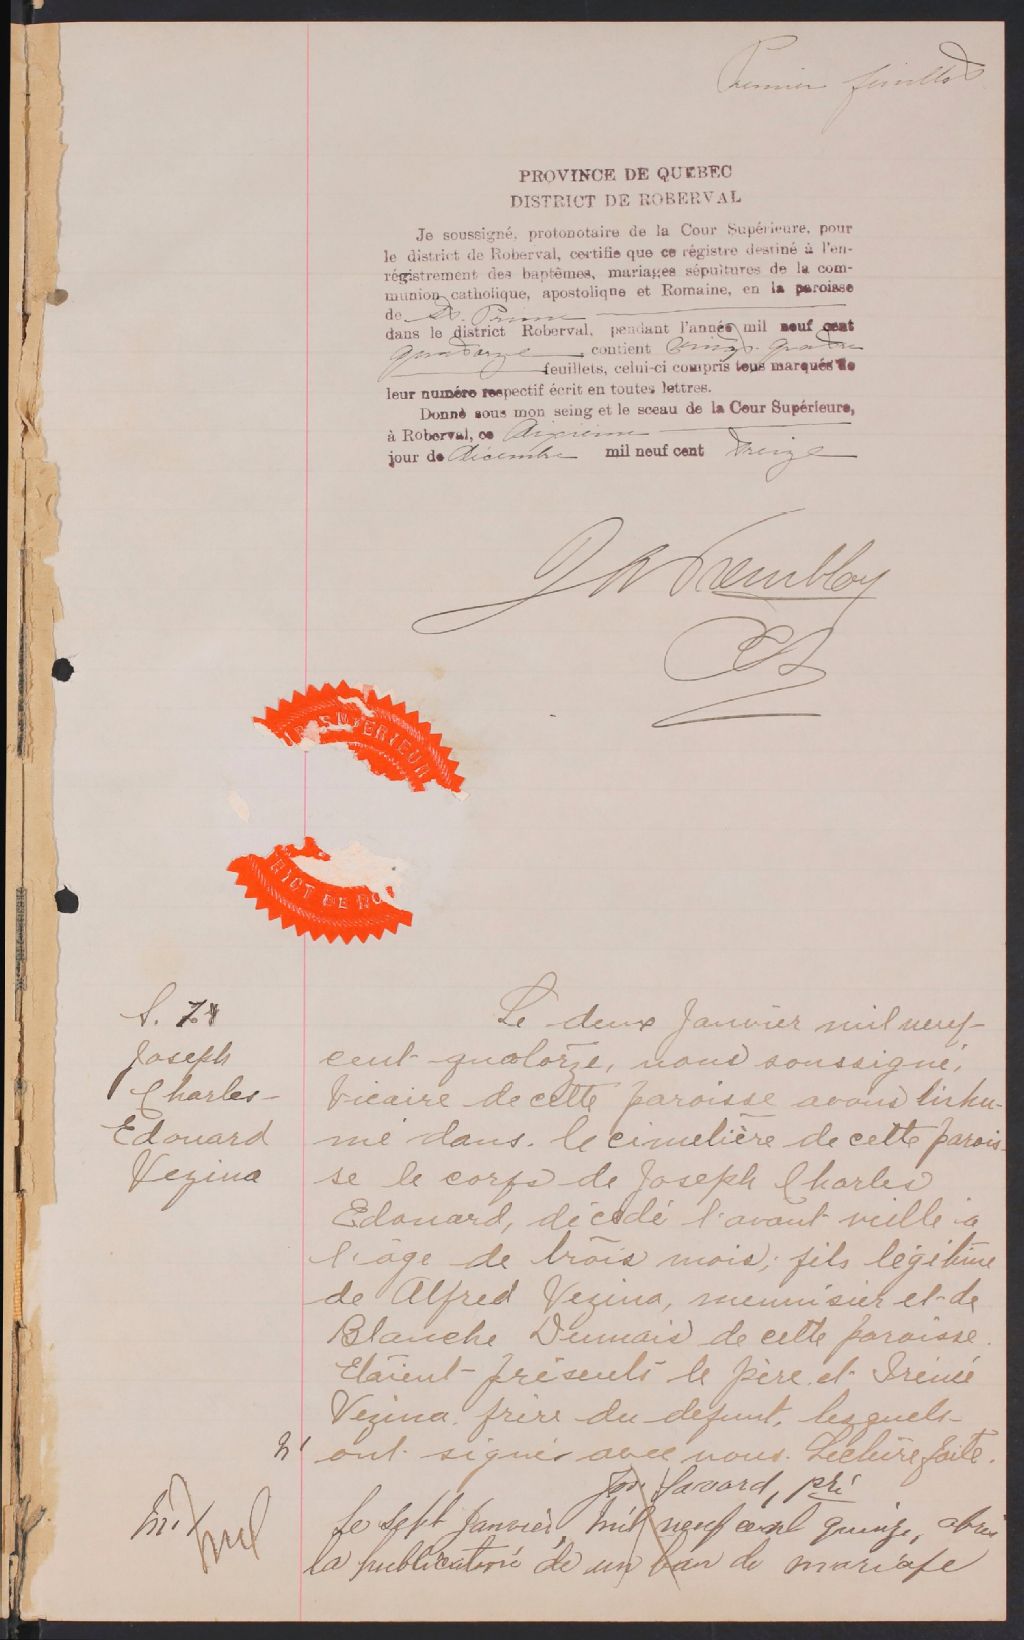 Premier feuillet
PROVINCE DE QUEBEC
DISTRICT DE ROBERVAL
Je soussigné, protonotaire de la Cour Supérieure, pour
le district de Roberval, certifie que ce régistre destiné à l'en-
régistrement des baptêmes, mariages sépultures de la com-
munion catholique, apostolique et Romaine, en la paroisse
de St. Prime
dans le district Roberval, pendant l'année mil neuf cent
quatorze contient vingt-quatre
feuillets, celui-ci compris tous marqués de
leur numéro respectif écrit en toutes lettres.
Donné sous mon seing et le sceau de la Cour Supérieure,
à Roberval, ce dixième
jour de décembre mil neuf cent treize
Tremblay
SUPERIEUR
RICT DE RO
S.
Joseph
Charles-
Edouard
Vezina
Le deux Janvier mil neuf-
cent-quatorze, nous soussigné,
Vicaire de cette paroisse avons inhu-
mé dans le cimetière de cette parois-
se le corps de Joseph Charles
Edouard, décédé l'avant-veille à
l'âge de trois mois, fils légitime
de Alfred Vezina, menuisier et de
Blanche Dumais de cette paroisse.
Etaient présents le père et Irénée
Vezina frère du défunt, lesquels
ont signé avec nous. Lecture faite.
Jos. Savard, ptre
Le sept Janvier, mil neuf cent quinze, après
la publication de un ban de mariage
nul